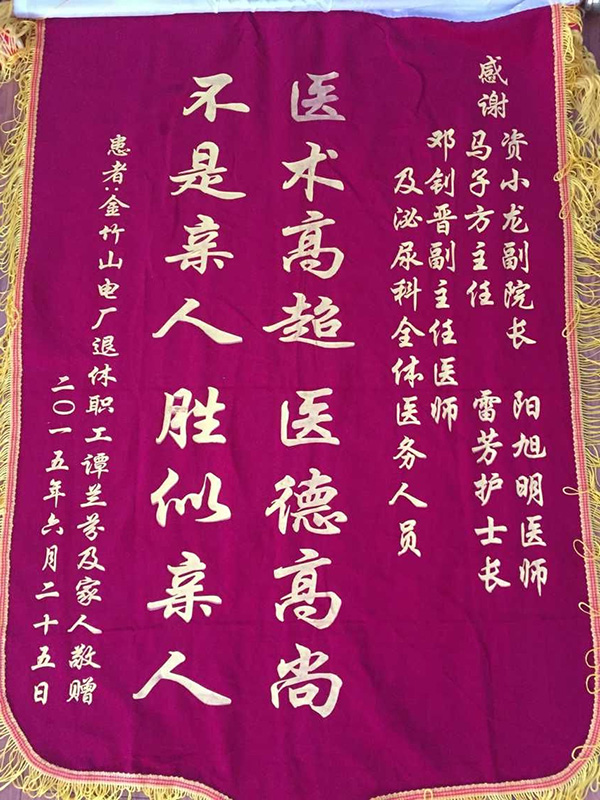 感谢
资小龙副院长 阳旭明医师
马子方主任 雷芳护士长
邓钊晋副主任医师
及泌尿科全体医务人员
医术高超 医德高尚
不是亲人 胜似亲人
患者:金竹山电厂退休职工谭兰芬及家人敬赠
二〇一五年六月二十五日